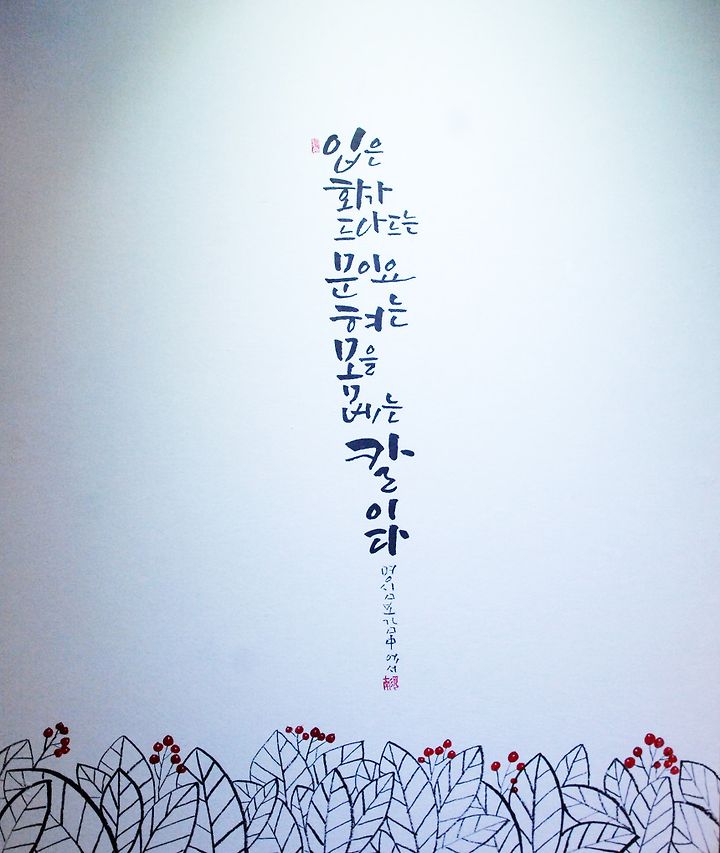 입은
화가
드나드는
문이요
혀는
몸을
베는
칼
이다
명심보감中에서